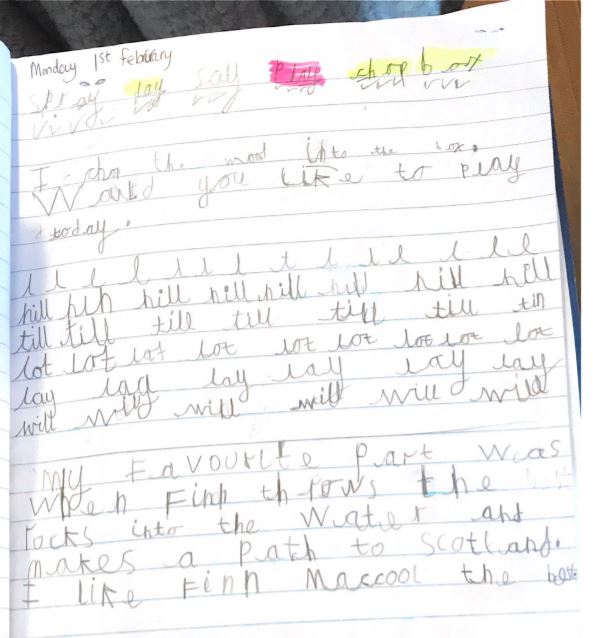 Monday 1st February
spray lay say play chop box
I chop the wood into the box.
Would you like to play
today.
l l l l l l l t l l l l l l
hill hill hill hill hill hill hill hill
till till till till till till till
lot lot lot lot lot lot lot lot lot
lay lay lay lay lay lay
will will will will will will
My favourite part was
when Finn throws the
rocks into the water and
makes a path to Scotland.
I like Finn Maccool the best